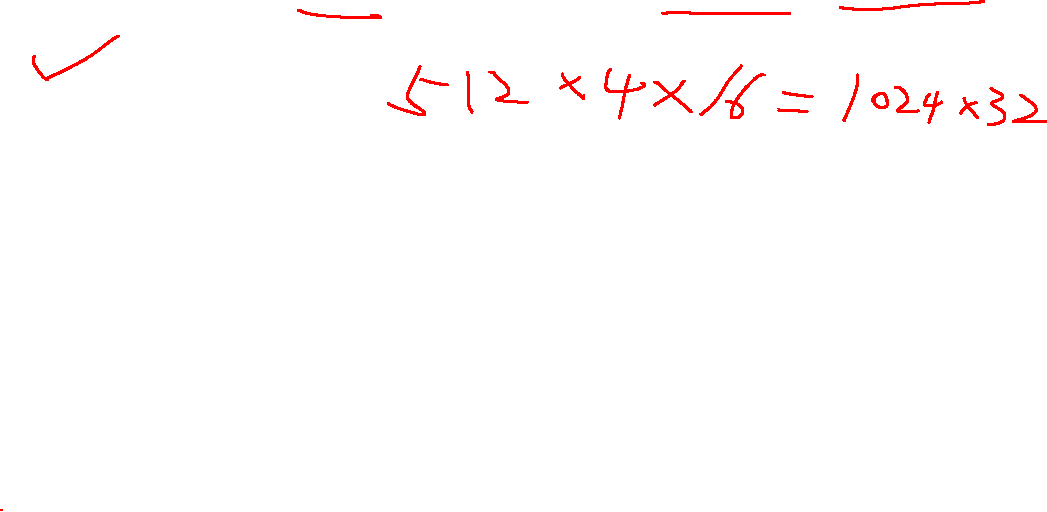 512 × 4 × 16 = 1024 × 32